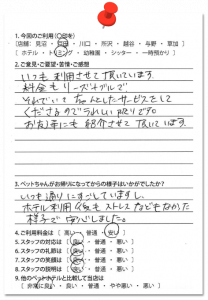 1. 今回のご利用(○印を)
[店舗: 見沼・・川口・所沢・越谷・与野・草加]
[ホテル・トリミング・幼稚園・シッター・一時預かり]
2.ご意見・ご要望・苦情・ご感想
いつも利用させて頂いています。
料金もリーズナブルで
それでいてちゃんとしたサービスをして
くださるのでうれしい限りです。
お友達にも紹介させて頂いています
3. ペットちゃんがお帰りになってからの様子はいかがでしたか?
いつも通りにすごしていますし、
ホテル利用後もストレスなどもなかった
様子で安心しました。
4. ご利用料金は[高い・普通・安い]
5. スタッフの対応は[良い・普通・悪い]
6. スタッフの礼節は[良い・普通・悪い]
7. スタッフの笑顔は[良い・普通・悪い]
8. スタッフの説明は[良い・普通・悪い]
9. 他のペットホテルと比較して当店は
[非常に良い・良い・普通・やや悪い・悪い]